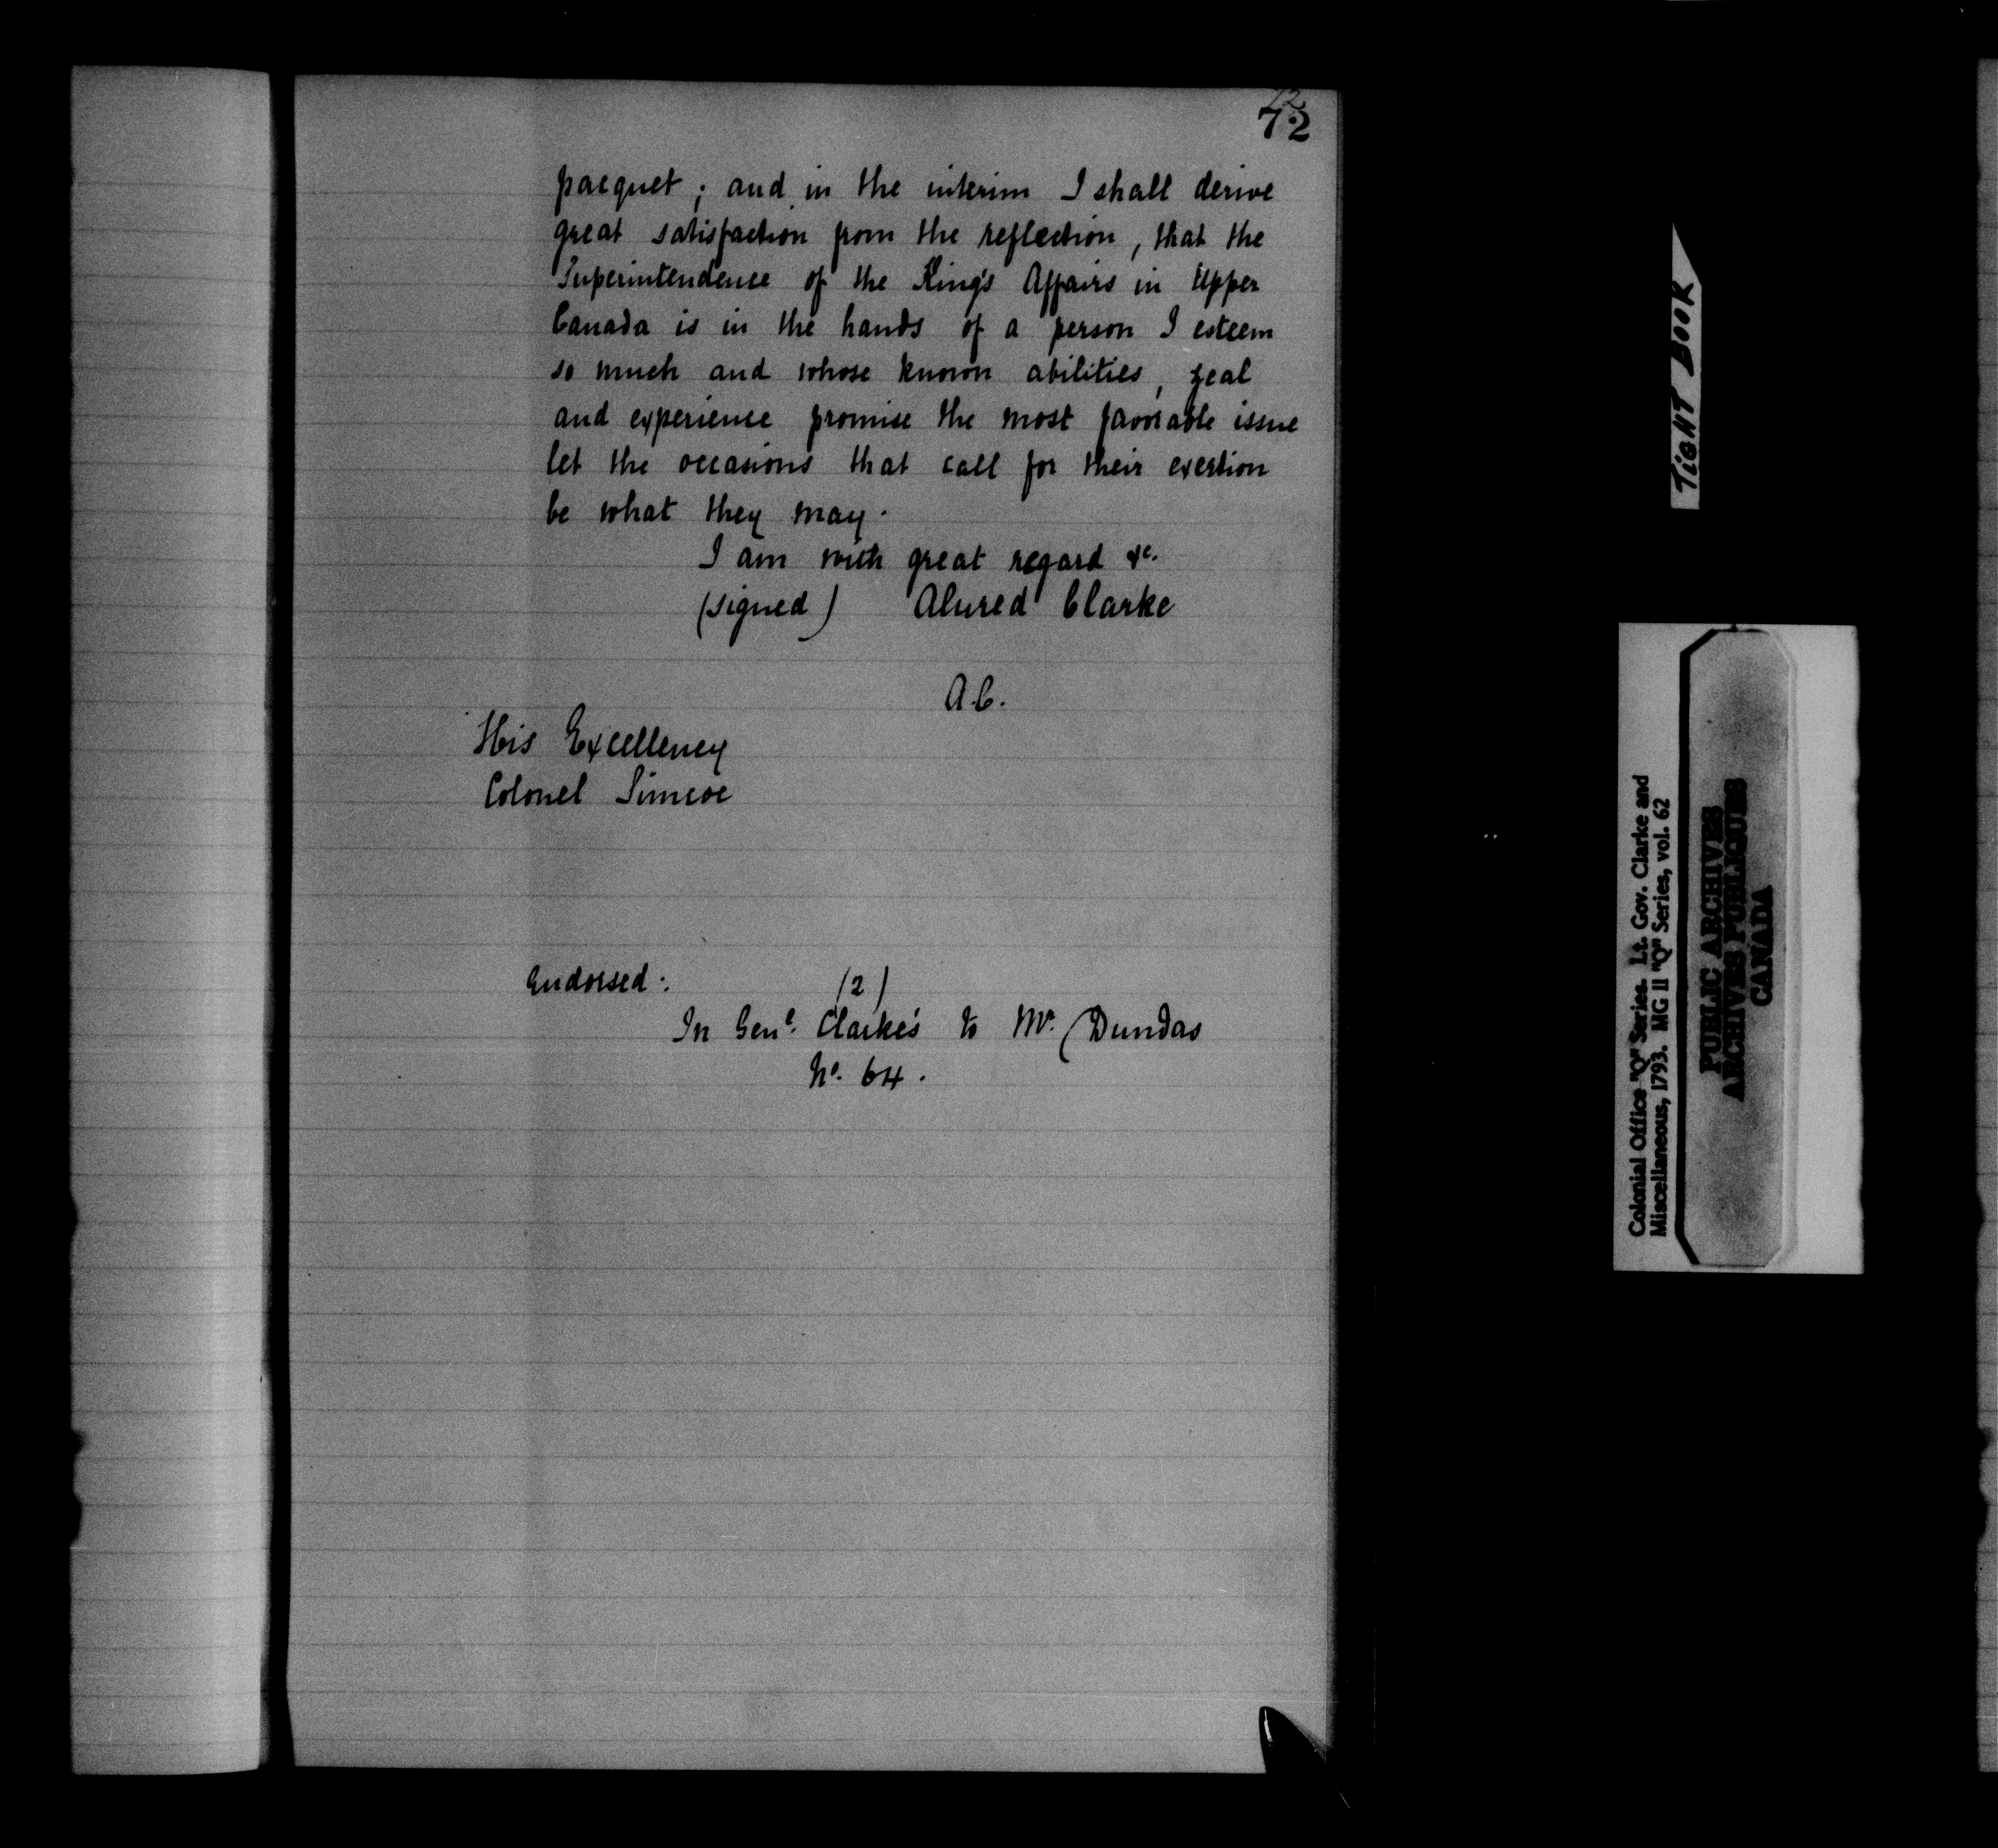 72
72
pacquet; and in the interim I shall derive
great satisfaction from the reflection, that the
Superintendence of the King's Affairs in Upper
Canada is in the hands of a person I esteem
so much and whose known abilities, zeal
and experience promise the most favorable issue
let the occasions that call for their exertion
be what they may.
I am with great regard &c.
(signed) Alured Clarke
A.C.
His Excellency
Colonel Simcoe
Endorsed: (2)
In Genl. Clarke's to Mr. Dundas
No. 64.
TIGHT BOOK
Colonial Office "Q" Series. Lt. Gov. Clarke and
Miscellaneous, 1793. MG 11 "Q" Series, vol. 62
PUBLIC ARCHIVES
ARCHIVES PUBLIQUES
CANADA